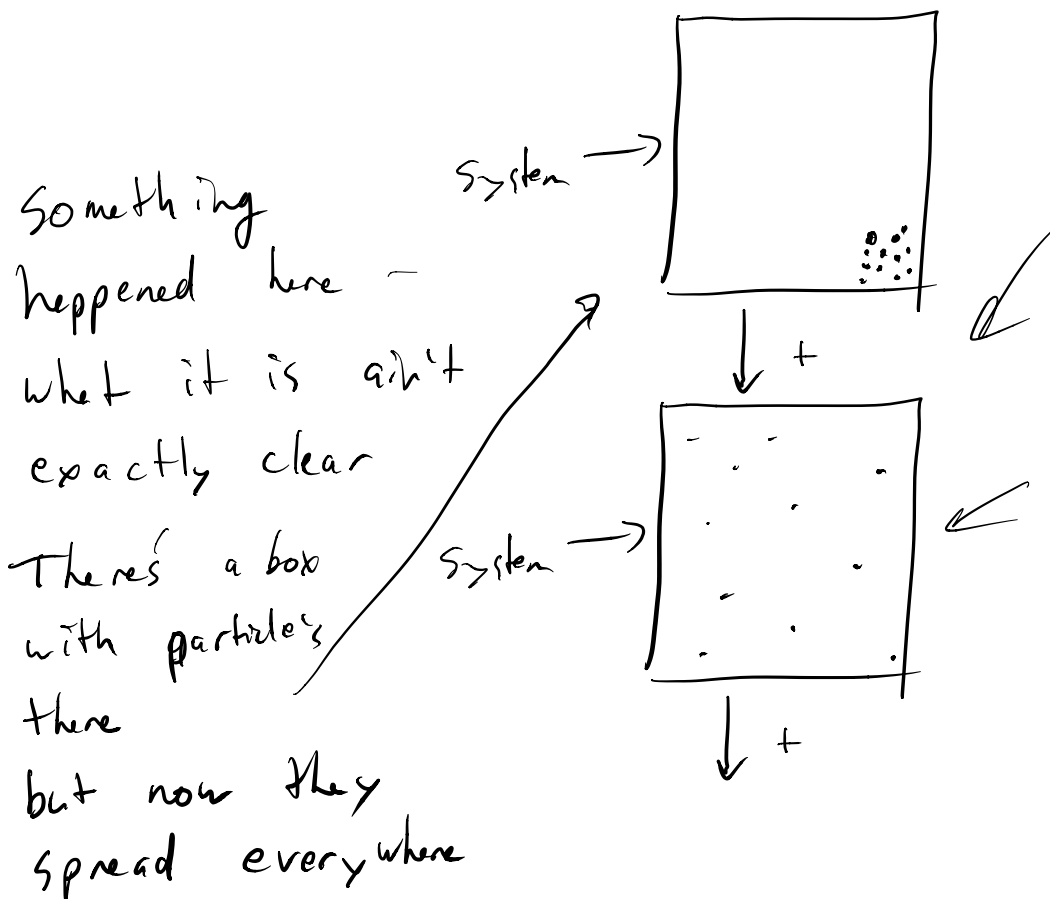 System
Something
happened here –
what it is ain't
exactly clear
There's a box
with particle's
there
but now they
spread everywhere
+
System
+